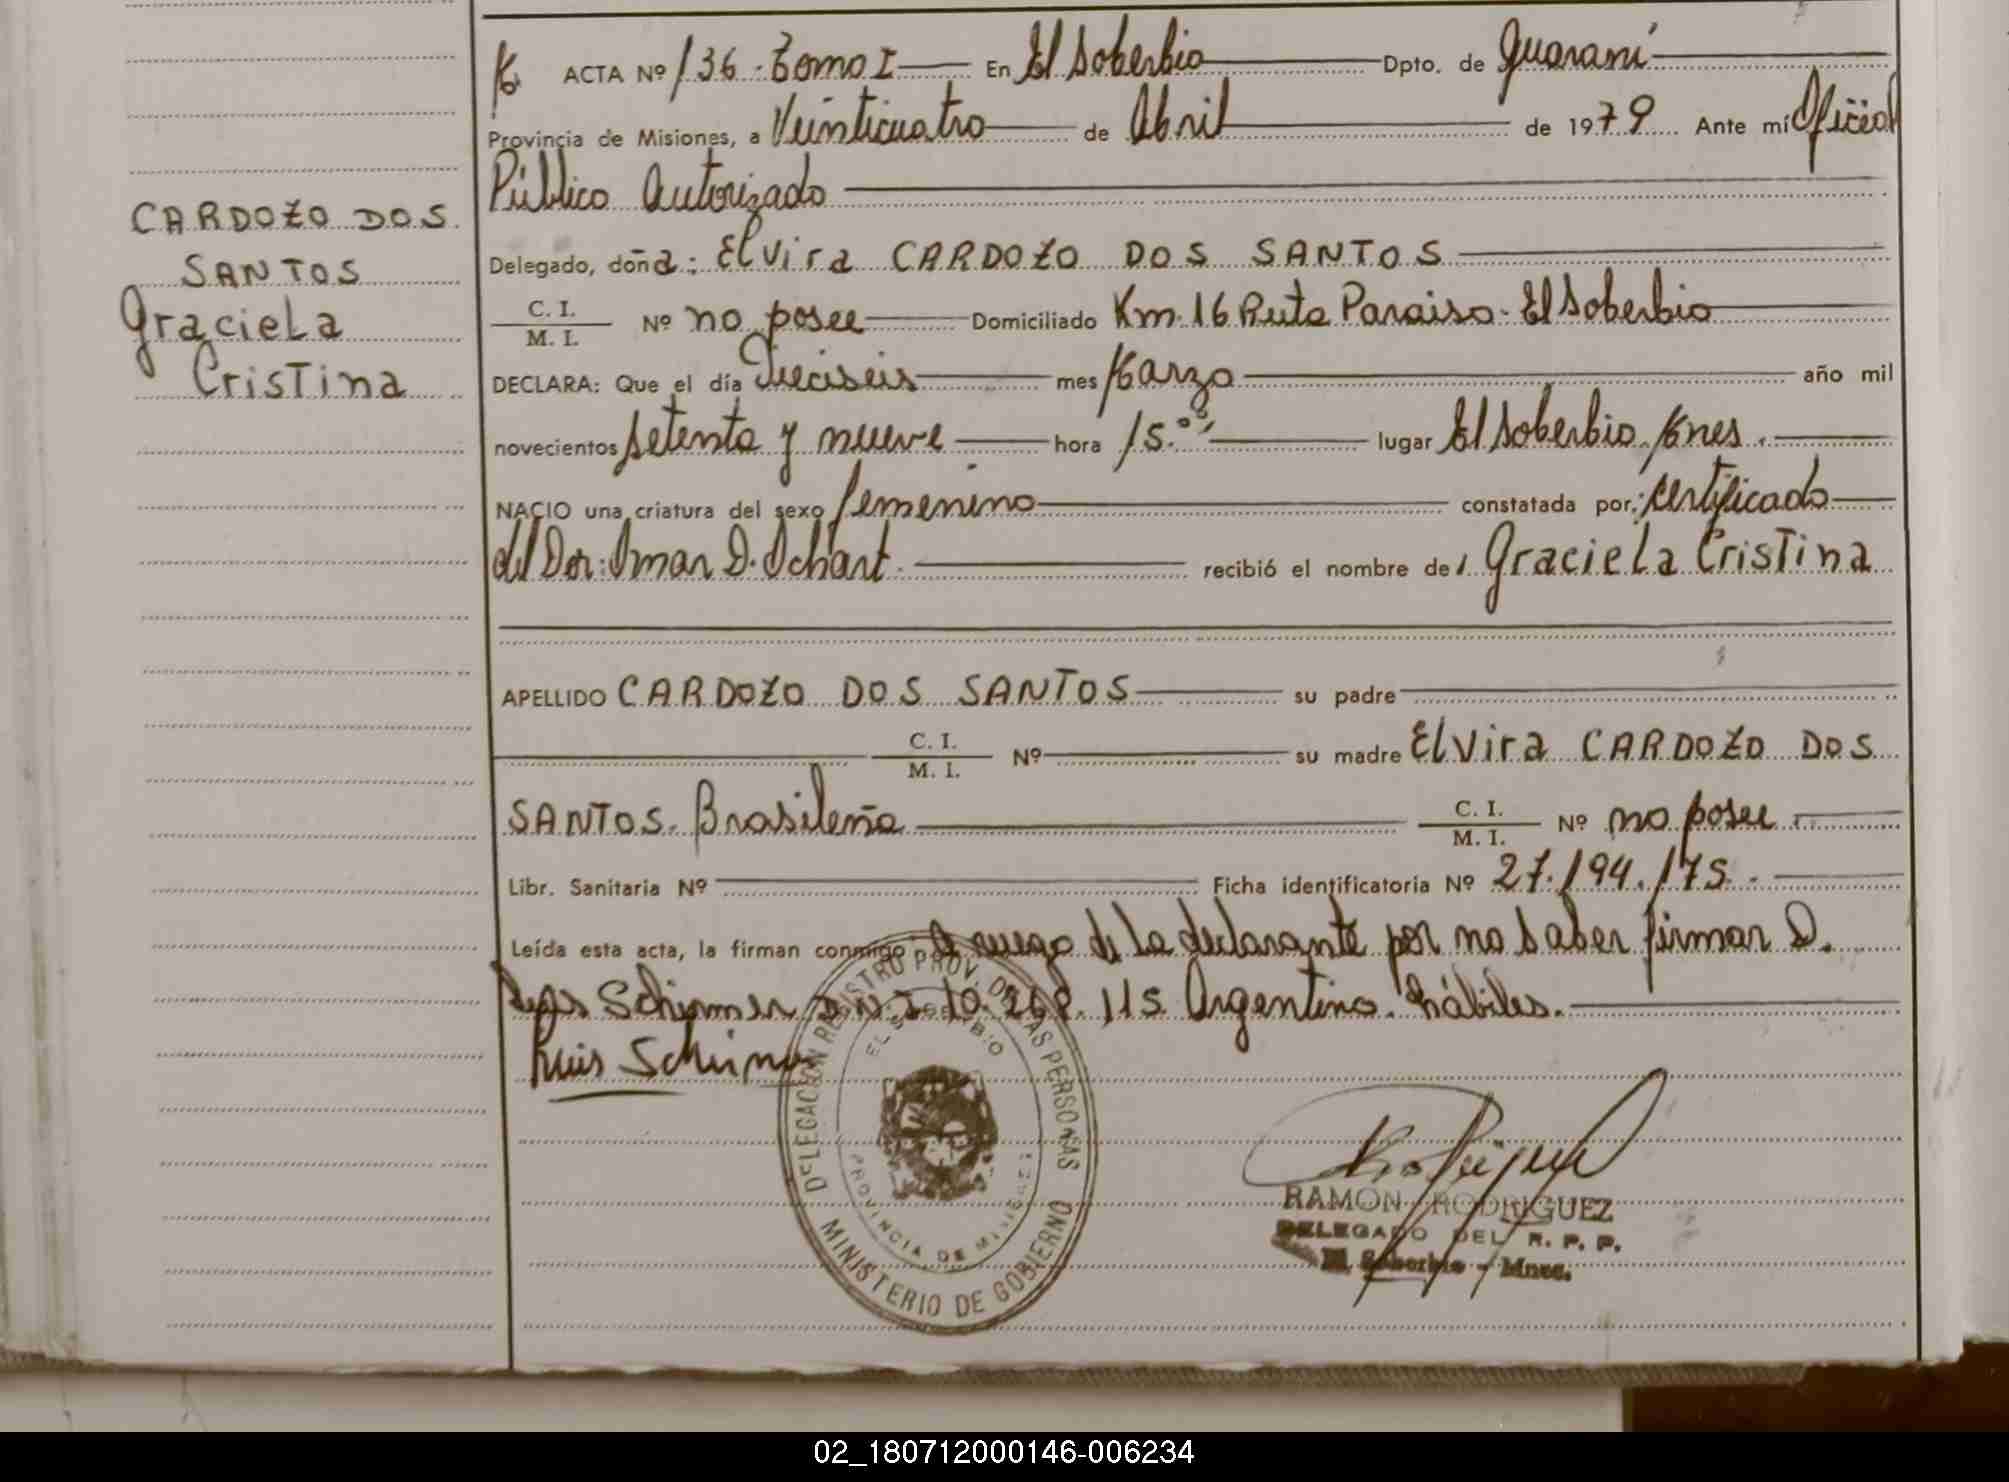 CARDOZO DOS
SANTOS
Graciela
Cristina
ACTA Nº 136 - Tomo I En El Soberbio Dpto. de Guaraní
Provincia de Misiones, a Veinticuatro de Abril de 1979 Ante mí Oficial
Público Autorizado
Delegado, doña: Elvira CARDOZO DOS SANTOS
C. I.
M. I. Nº no posee Domiciliado Km. 16 Ruta Paraiso - El Soberbio
DECLARA: Que el día Dieciseis mes Marzo año mil
novecientos setenta y nueve hora 15.⁰⁰ lugar El Soberbio, Mnes.
NACIO una criatura del sexo femenino constatada por: certificado
del Dor: Omar D. Ochart. recibió el nombre de Graciela Cristina
APELLIDO CARDOZO DOS SANTOS su padre
C. I.
M. I. Nº su madre Elvira CARDOZO DOS
SANTOS. Brasileña C. I.
M. I. Nº no posee
Libr. Sanitaria Nº Ficha identificatoria Nº 27.194.175.
Leída esta acta, la firman conmigo a ruego de la declarante por no saber firmar D.
Schirmer 10.268.115 Argentino. hábiles.
Luis Schirmer
DELEGACION REGISTRO PROV. DE LAS PERSONAS
EL SOBERBIO
PROVINCIA DE MISIONES
MINISTERIO DE GOBIERNO
RAMON RODRIGUEZ
DELEGADO DEL R. P. P.
El Soberbio - Mnes.
02_180712000146-006234